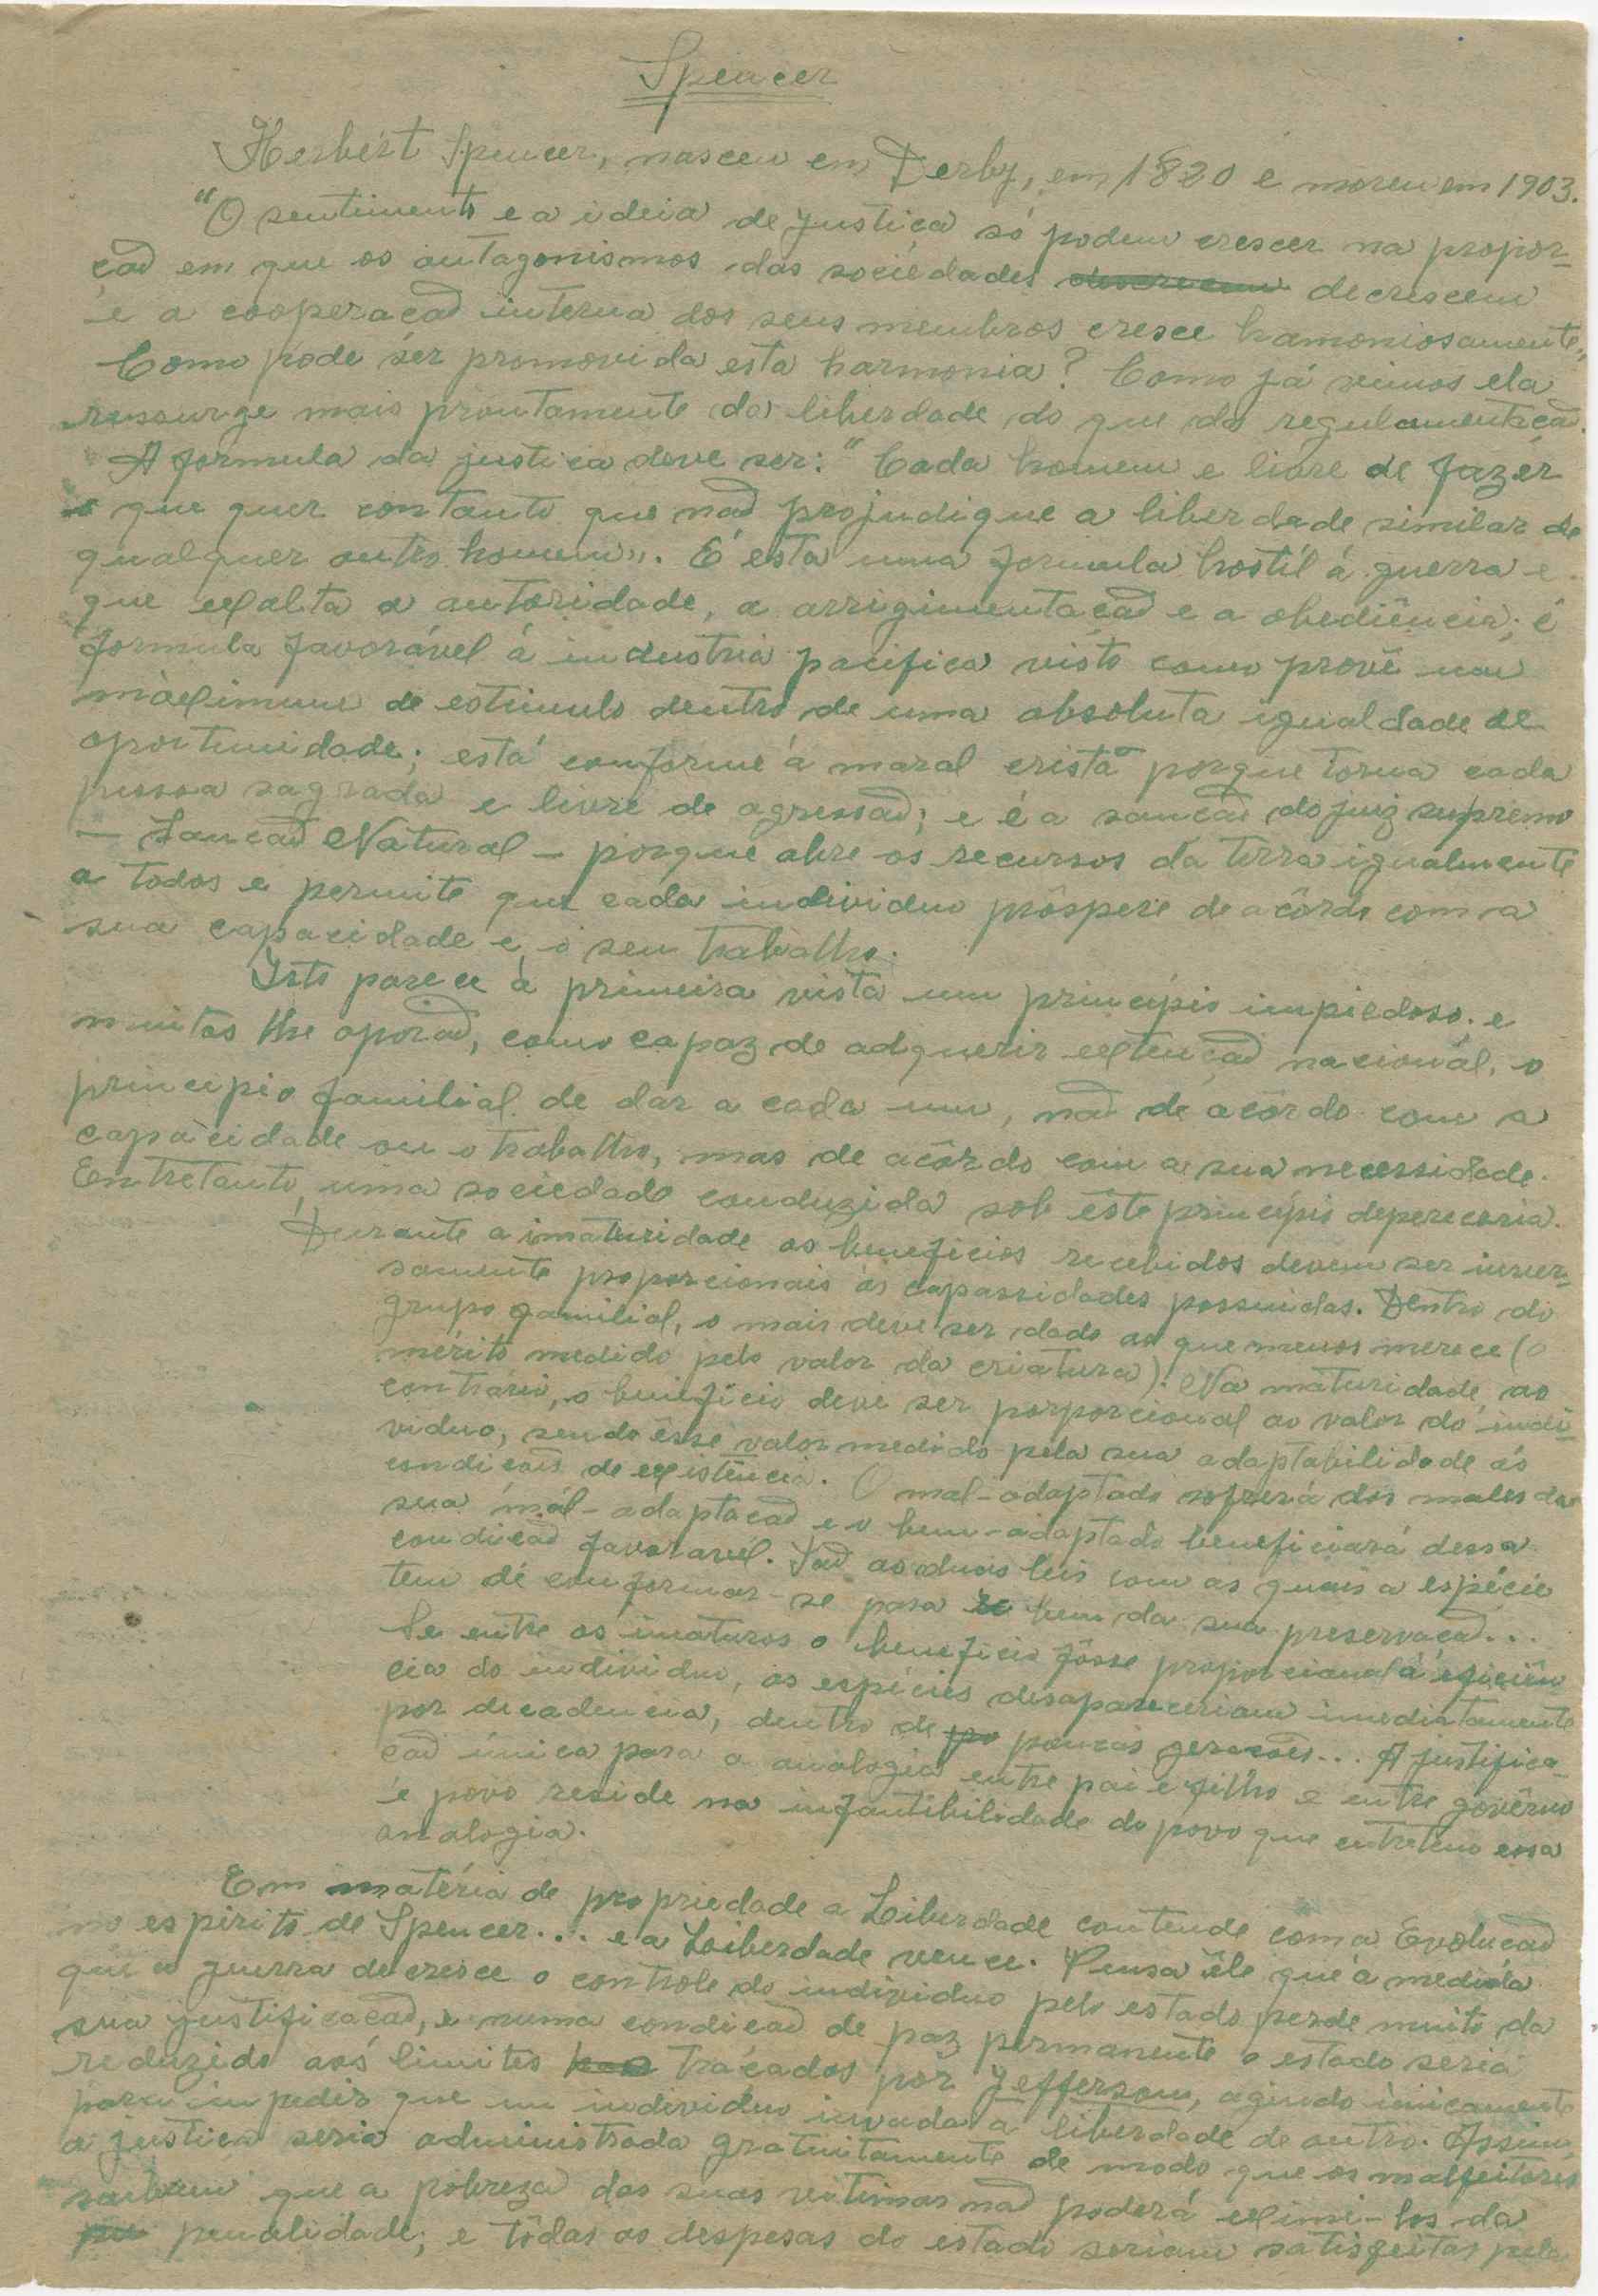 Spencer
Herbért Spencer, nasceu em Derby, em 1820 e moreu em 1903.
"O sentimento e a ideia de justiça só podem crescer na propor-
çaõ em que os antagonismos das sociédades decrescem
e a cooperaçaõ interna dos seus membros cresce hamoniosamente„
Como pode sér promovida esta harmonia? Como já vimos ela
ressurge mais prontamente da liberdade do que da regulamentaçaõ.
A formula da justiça deve ser: "Cada homem e livre de fazer
o que quer contanto que naõ projudique a liberdade similar de
qualquer outro homem„. É esta uma formula hostíl á guerra e
que exalta a autoridade, a arrigimentaçaõ e a obediência; é
formula favorável á industria pacifica visto como provê um
máximum de estimulo dentro de uma absoluta igualdade de
oportunidade; está conforme á maral cristã porque torna cada
pessoa sagrada e livre de agressaõ; e é a sançaõ do juiz supremo
— Sançaõ Natural — porque abre os recursos da terra igualmente
a todos e permite que cada individuo próspere de acôrdo com a
sua capacidade e o seu trabalho.
Isto parece á primeira vista um princípio impiedoso. e
muitos lhe oporaõ, como capaz de adquerir extençaõ nacional, o
principio familial de dar a cada um, naõ de acôrdo com a
capacidade ou o trabalho, mas de acôrdo com a sua necessidade.
Entretanto, uma sociedade conduzida sob êste princípio depereceria.
Durante a imaturidade os beneficios recebidos devem ser inver-
samente proporcionais ás capassidades possuidas. Dentro do
grupo familial, o mais deve ser dado ao que menos merece (o
mérito medido pelo valor da criatura). Na maturidade, ao
contrário, o benifício deve ser porporcional ao valor do indi-
viduo, sendo êsse valor medido pela sua adaptabilidade ás
condiçoẽs de existência. O mal-adaptado sofrerá dos males da
sua mál-adaptaçaõ e o bem-adaptado beneficiará dessa
condiçaõ favoravél. Saõ as duas leis com as quais a espécie
tem de conformar-se para bem da sua preservaçaõ...
Se entre os imaturos o beneficio fôsse proporcional á eficiên
cia do individuo, as espécies desapareceriam imediatamente
por decadencia, dentro de poucas geraçoẽs... A justifica-
çaõ única para a analogia entre pai e filho e entre govêrno
e povo reside na infantibilidade do povo que entretem essa
analogia.
Em matéria de propriedade a Liberdade contende com a Evoluçaõ
no espirito de Spencer... e a Liberdade vence. Pensa êle que á medida
que a guerra decresce o controle do individuo pelo estado perde muito da
sua justificaçaõ, e numa condiçaõ de paz permanente o estado seria
reduzido aos limites traçados por Jeffersom, agindo únicamente
para impedir que um individuo invada a liberdade de outro. Assim
a justiça seria administrada gratuitamente de modo que os malfeitores
saibam que a pobreza das suas vitimas naõ poderá eximi-los da
penalidade; e tôdas as despesas do estado seriam satisfeitas pela